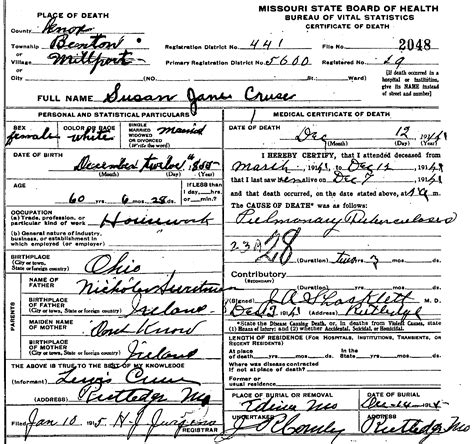 MISSOURI STATE BOARD OF HEALTH
BUREAU OF VITAL STATISTICS
CERTIFICATE OF DEATH
PLACE OF DEATH
County Knox
Township Benton
or
Village Millport
or
City (No. St.; Ward)
Registration District No. 441 File No. 2048
Primary Registration District No. 5600 Registered No. 29
(If death occurred in a
hospital or institution,
give its NAME instead
of street and number)
FULL NAME Susan Jane Cruse
PERSONAL AND STATISTICAL PARTICULARS
SEX female COLOR OR RACE white
SINGLE
MARRIED
WIDOWED
OR DIVORCED
(Write the word)
married
DATE OF BIRTH
December
(Month) (Day) (Year)
AGE
60 yrs. 6 mos. 28 ds.
If LESS than
1 day, hrs.
or min.?
OCCUPATION
(a) Trade, profession, or
particular kind of work Housework
(b) General nature of industry,
business, or establishment in
which employed (or employer)
BIRTHPLACE
(City or town,
State or foreign country) Ohio
PARENTS
NAME OF
FATHER Nicholas
BIRTHPLACE
OF FATHER
(City or town, State or foreign country) Ireland
MAIDEN NAME
OF MOTHER Dont Know
BIRTHPLACE
OF MOTHER
(City or town, State or foreign country) Ireland
THE ABOVE IS TRUE TO THE BEST OF MY KNOWLEDGE
(Informant) Cruse
(ADDRESS) Rutledge Mo
Filed Jan 10 1915 H J Jurgens
REGISTRAR
MEDICAL CERTIFICATE OF DEATH
DATE OF DEATH
Dec 12 191
(Month) (Day) (Year)
I HEREBY CERTIFY, that I attended deceased from
March 191 to Dec 12 191
that I last saw her alive on Dec 7 191
and that death occurred, on the date stated above, at m.
The CAUSE OF DEATH* was as follows:
Pulmonary Tuberculosis
28
(Duration) yrs. mos. ds.
Contributory
(Secondary)
(Duration) yrs. mos. ds.
(Signed) J.A. Shacklett M. D.
Dec 13 191 (Address) Rutledge
*State the Disease Causing Death, or, in deaths from Violent Causes, state
(1) Means of Injury; and (2) whether Accidental, Suicidal, or Homicidal.
LENGTH OF RESIDENCE (For Hospitals, Institutions, Transients, or Recent Residents)
At place
of death yrs. mos. ds. In the
State yrs. mos. ds.
Where was disease contracted
if not at place of death?
Former or
usual residence
PLACE OF BURIAL OR REMOVAL
Edina Mo
DATE OF BURIAL
Dec 14 1914
UNDERTAKER
ADDRESS
Rutledge Mo